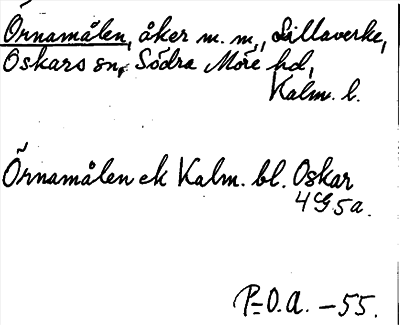 Örnamålen, åker m.m., Lillaverke,
Oskars sn, Södra Möre hd,
Kalm. l.
Örnamålen ek Kalm. bl. Oskar
4G5a.
P=O.A. -55.